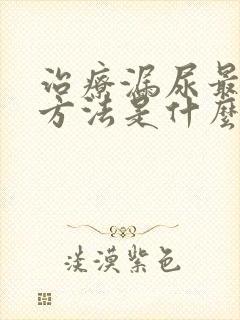 治療漏尿最
方法是什麼
淡漠紫色